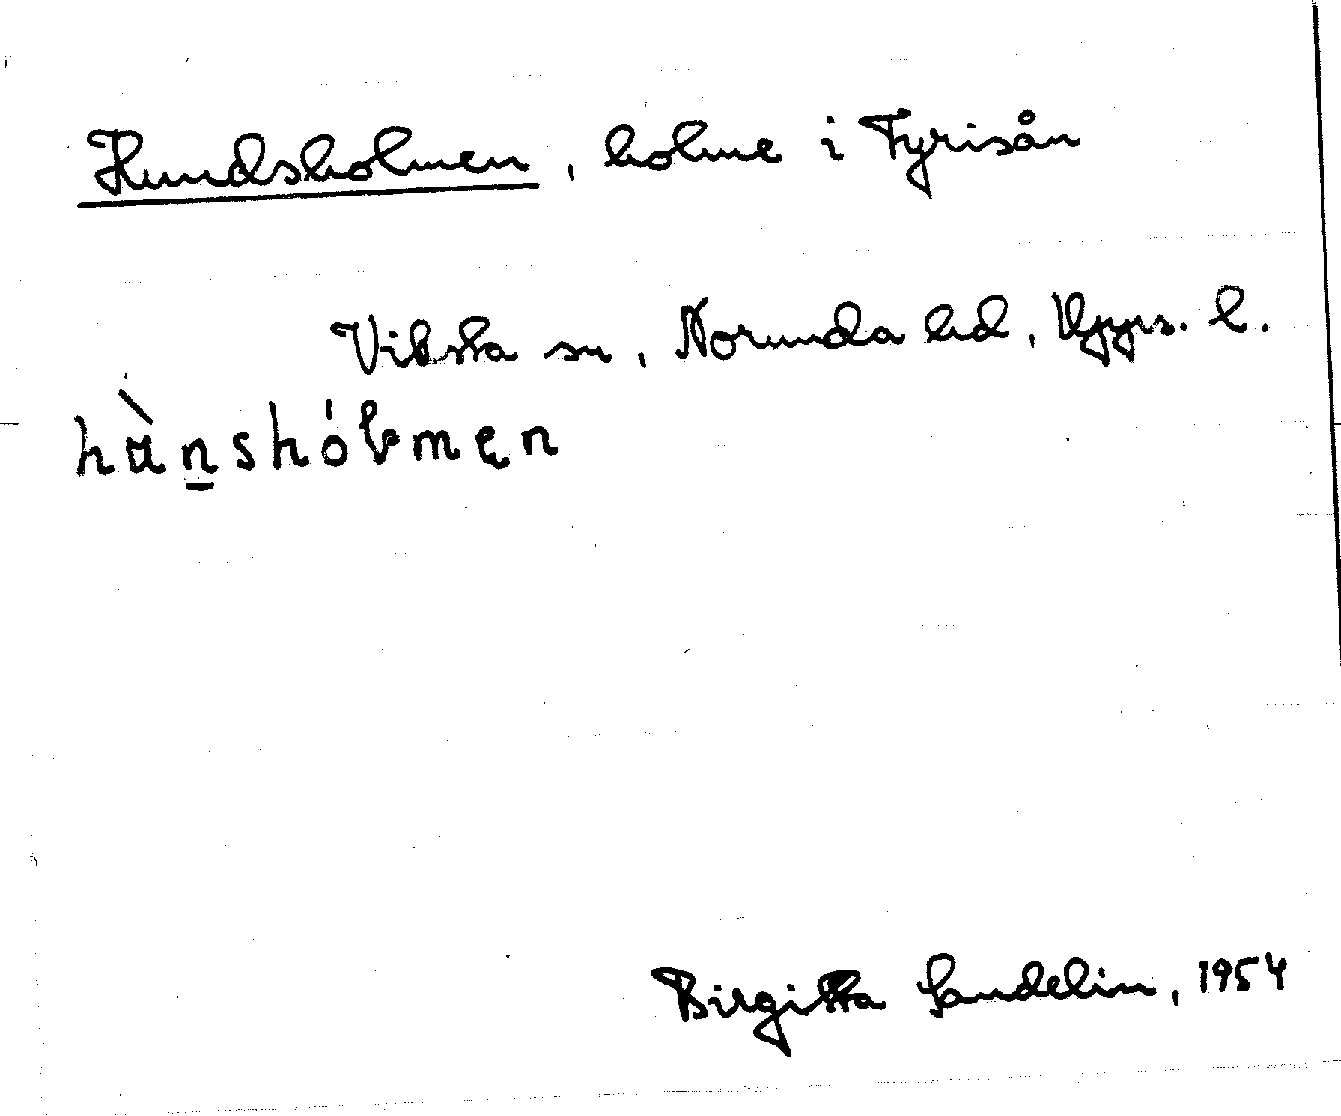 Hundsholmen, holme i Fyrisån
Viksta sn, Norunda hd, Upps. l.
Birgitta Sandelin, 1954